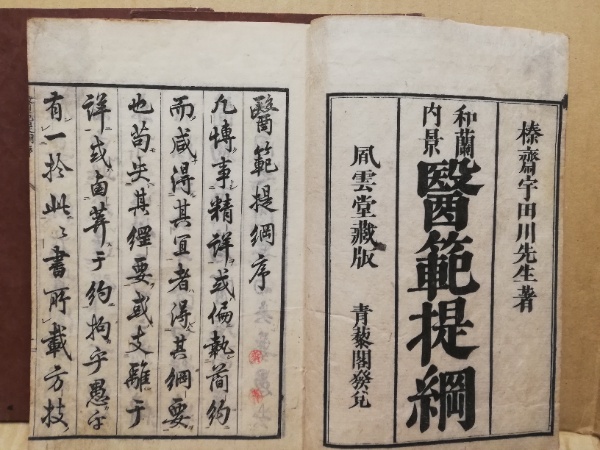 榛齋宇田川先生著
和蘭
内景
醫範提綱
風雲堂藏版
青藜閣發兌
醫範提綱序
凡博事精詳或偏執簡約
而咸得其宜者得其綱要
也苟失其經要或支離于
詳或鹵莽于約拘乎愚乎
有一於此此書所載方技